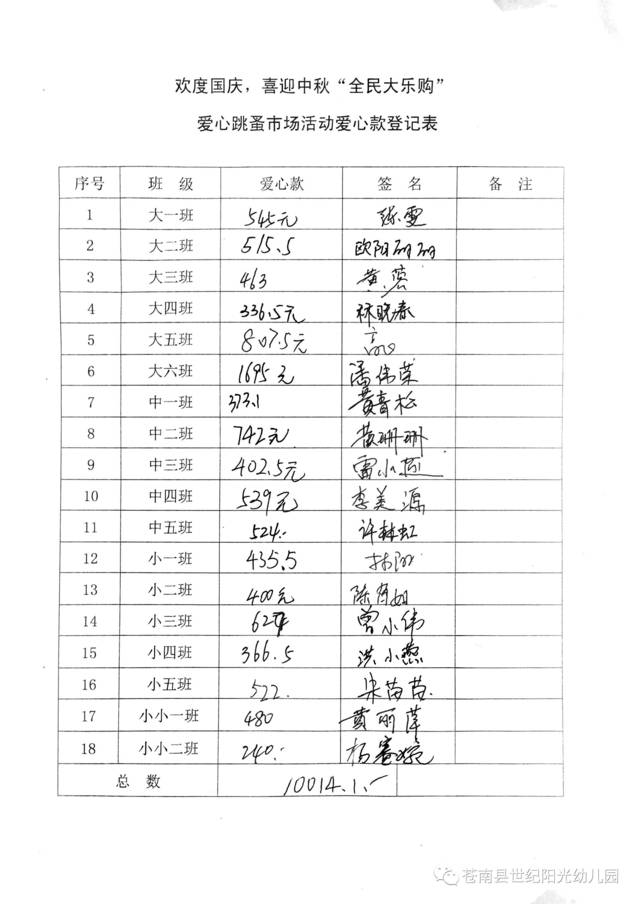 欢度国庆，喜迎中秋“全民大乐购”
爱心跳蚤市场活动爱心款登记表
序号 班 级 爱心款 签 名 备 注
1 大一班 545元
2 大二班 515.5 欧阳丽丽
3 大三班 463 黄蓉
4 大四班 336.5元 林晓春
5 大五班 807.5元
6 大六班 1695元 潘伟荣
7 中一班 373.1 黄青松
8 中二班 742元 黄珊珊
9 中三班 402.5元 雷小燕
10 中四班 539元 李美源
11 中五班 524. 许林虹
12 小一班 435.5
13 小二班 400元
14 小三班 曾小伟
15 小四班 366.5 洪小燕
16 小五班 522. 朱苗苗
17 小小一班 480 黄丽萍
18 小小二班 240.
总 数 10014.1
苍南县世纪阳光幼儿园